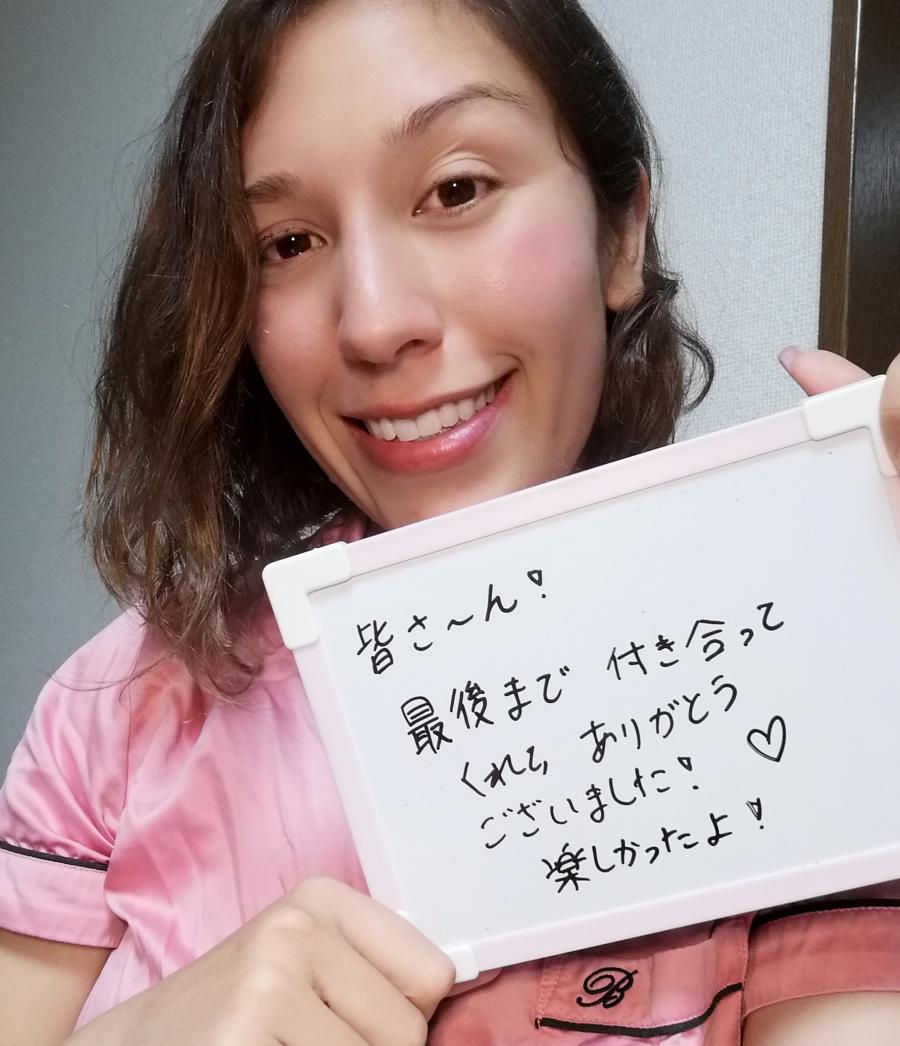 皆さ〜ん!
最後まで 付き合って
くれて、ありがとう
ございました! ♡
楽しかったよ!
B